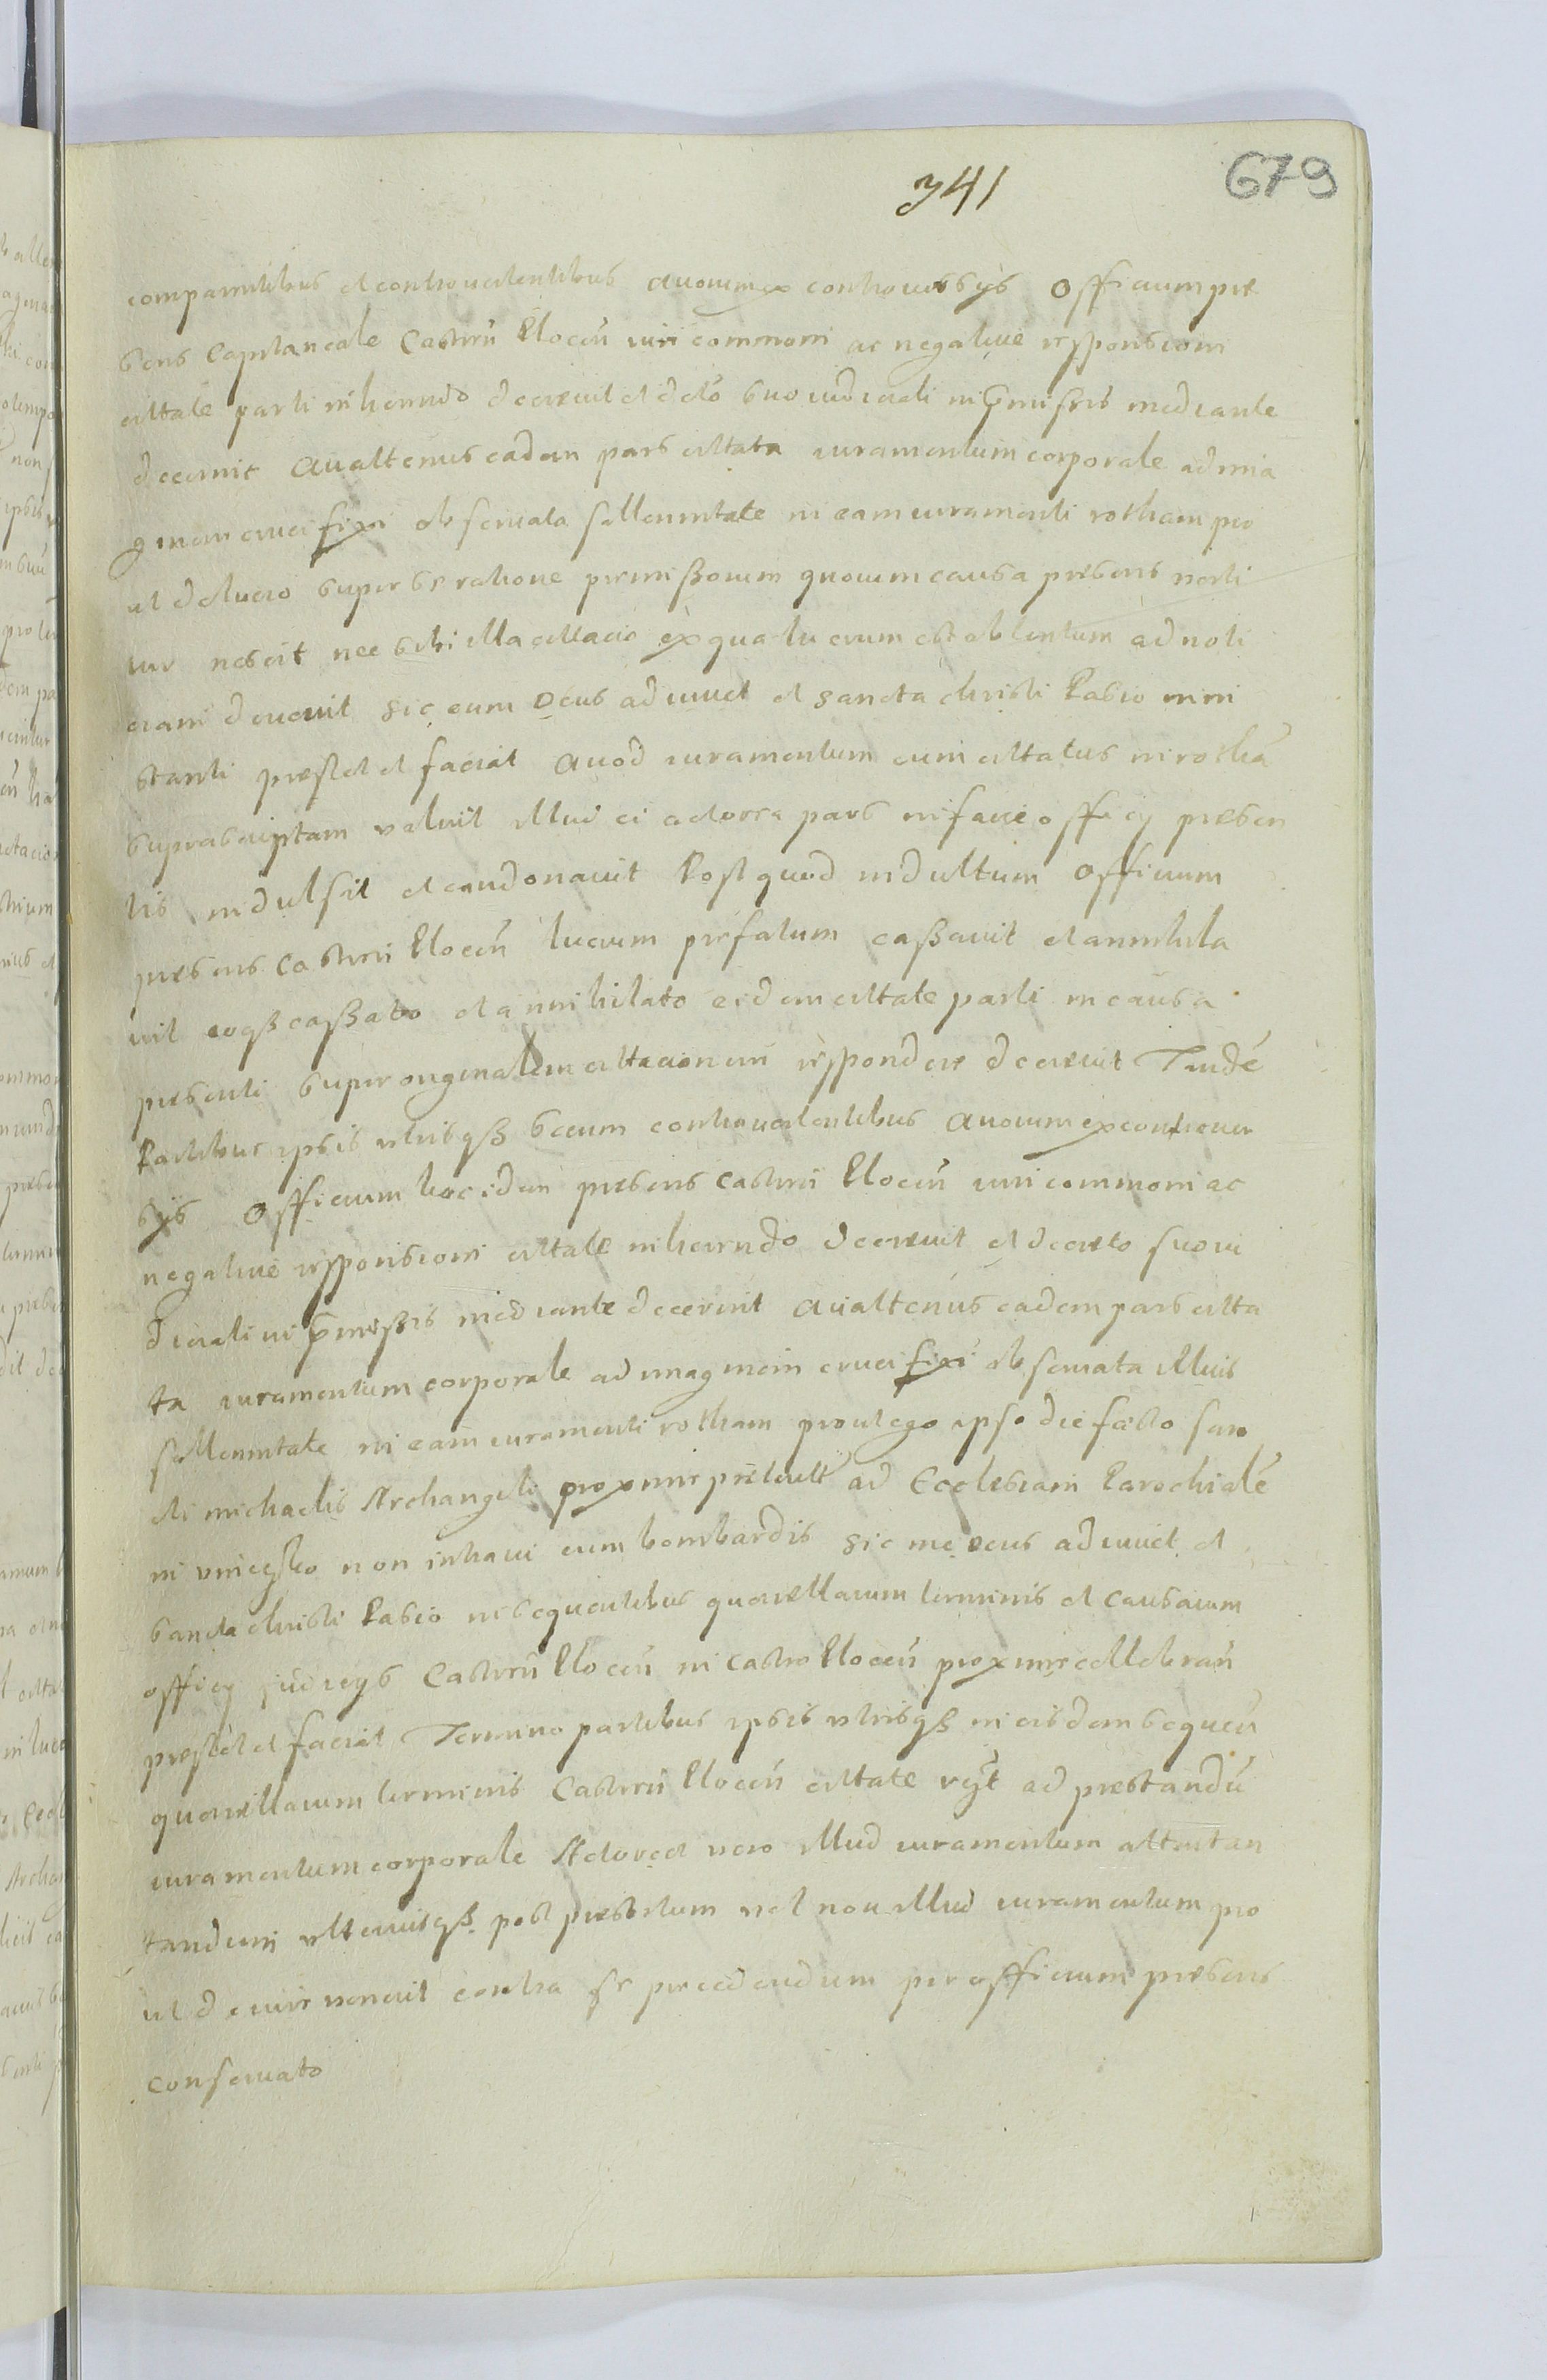 341
679
comparentibus et controvertentibus Quorum ex controversys Officium pre
sens Capitaneale Castren Plocen iuri communi ac negative responsioni
cittate parti inherendo decrevit et dcto suo iudiciali in pmissis mediante
decernit Quattenus eadem pars cittata iuramentum corporale ad ima
ginem crucifixi observata sollennitate in eam iuramenti rotham pro
ut de lucro super se ratione premissorum quorum causa presens verti
tur nescit nec sibi illa cittacio ex qua lucrum est obtentum ad noti
ciam devenit sic eum Deus adiuvet et sancta christi Passio mini
stanti prestet et faciat Quod iuramentum cum cittatus in rotha
suprascriptam voluit illud ei actorea pars in facie officy presen
tis indulsit et condonavit Post quod indultum Officium
presens Castren Plocen lucrum prefatum cassavit et annihila
vit eoqß cassato et annihilato eidem cittate parti in causa
presenti super originalem cittacionem respondere decrevit Tande
Partibus ipsis utrisqß secum controvertentibus Quorum ex controver
sys Officium hoc idem presens Castren Plocen iuri communi ac
negative responsioni cittate inherendo decrevit et decreto suo iu
diciali in pmissis mediante decernit Quattenus eadem pars citta
ta iuramentum corporale ad imaginem crucifixi observata illius
sollennitate in eam iuramenti rotham prout ego ipso die festo san
cti michaelis Archangeli proxime preterit ad Ecclesiam Parochiale
in non intravi cum bombardis sic me Deus adiuvet et
sancta christi Passio in sequentibus querellarum terminis et causarum
officy iudicys Castren Plocen in castro Plocen proxime cellebran
prestet et faciat Termino partibus ipsis utrisqß in eisdem sequen
querellarum terminis Castren Plocen cittate ad prestandu
iuramentum corporale Actorea vero illud iuramentum attentan
tandum ulteriusqß post prestitum vel non illud iuramentum pro
ut de iure venerit contra se procedendum per officium presens
conservato